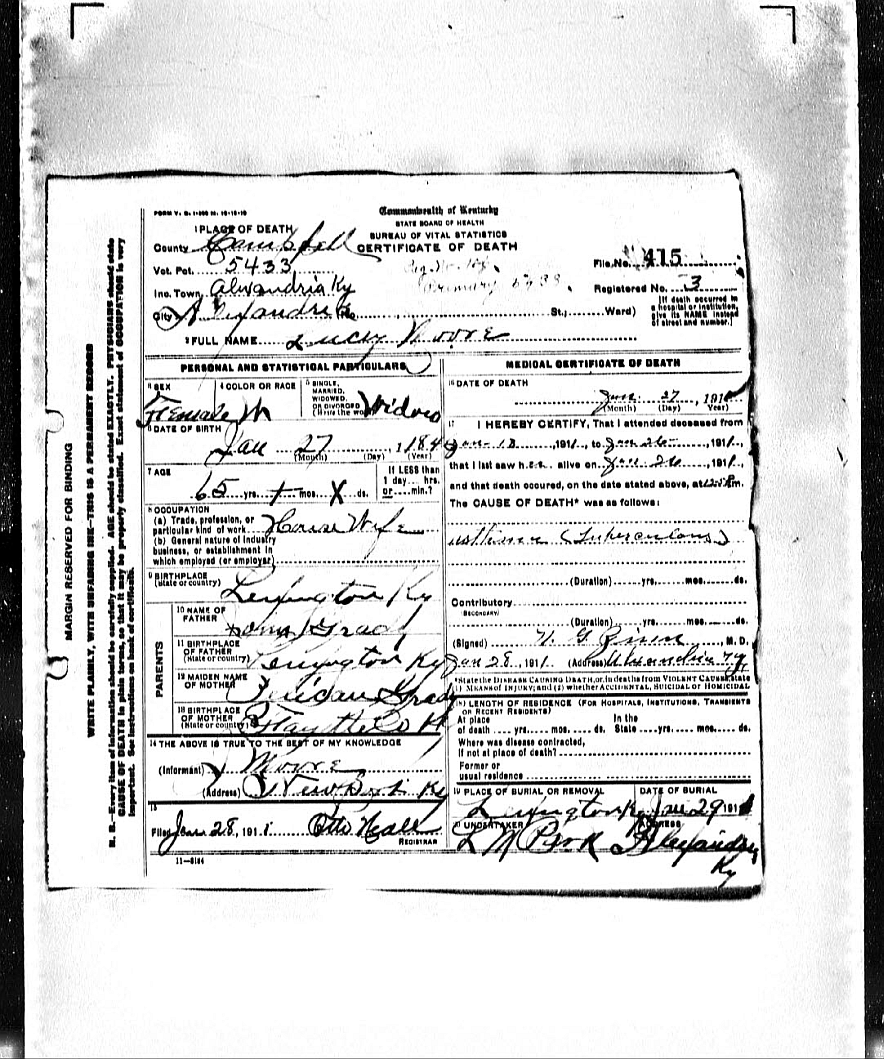 MARGIN RESERVED FOR BINDING
WRITE PLAINLY, WITH UNFADING INK—THIS IS A PERMANENT RECORD
N. B.—Every item of information should be carefully supplied. AGE should be stated EXACTLY. PHYSICIANS should state
CAUSE OF DEATH in plain terms, so that it may be properly classified. Exact statement of OCCUPATION is very
important. See instructions on back of certificate.
Commonwealth of Kentucky
STATE BOARD OF HEALTH
BUREAU OF VITAL STATISTICS
CERTIFICATE OF DEATH
1 PLACE OF DEATH
County Campbell
Vot. Pct. 5433
Inc. Town Alexandria Ky
City Alexandria St.; Ward)
File No. 415
Registered No. 3
[If death occurred in a hospital or institution, give its NAME instead of street and number.]
2 FULL NAME Lucy Moore
PERSONAL AND STATISTICAL PARTICULARS
3 SEX Female
4 COLOR OR RACE W
5 SINGLE, MARRIED, WIDOWED, OR DIVORCED (Write the word) Widow
6 DATE OF BIRTH
Jan 27, 184
(Month) (Day) (Year)
7 AGE
65 yrs. mos. X ds.
If LESS than 1 day.... hrs. or....min.?
8 OCCUPATION
(a) Trade, profession, or particular kind of work House Wife
(b) General nature of industry business, or establishment in which employed (or employer)
9 BIRTHPLACE
(State or country) Lexington Ky
PARENTS
10 NAME OF FATHER Grady
11 BIRTHPLACE OF FATHER (State or country) Lexington Ky
12 MAIDEN NAME OF MOTHER Grady
13 BIRTHPLACE OF MOTHER (State or country) Fayette Co K
14 THE ABOVE IS TRUE TO THE BEST OF MY KNOWLEDGE
(Informant) J Moore
(Address) Newport Ky
15
Filed Jan 28, 1911 Otto Neall
REGISTRAR
11—5184
MEDICAL CERTIFICATE OF DEATH
16 DATE OF DEATH
Jan 27, 191
(Month) (Day) Year)
17 I HEREBY CERTIFY, That I attended deceased from
Jan 18, 1911, to Jan 26, 1911,
that I last saw h.e.r. alive on Jan 26, 1911,
and that death occured, on the date stated above, at m.
The CAUSE OF DEATH* was as follows:
asthma (Tuberculous)
(Duration) yrs. mos. ds.
Contributory
SECONDARY
(Duration) yrs. mos. ds.
(Signed) M. D.
Jan 28, 1911 (Address) Alexandria Ky
*State the DISEASE CAUSING DEATH, or, in deaths from VIOLENT CAUSES, state
1) MEANS of INJURY; and (2) whether ACCIDENTAL, SUICIDAL OR HOMICIDAL
18 LENGTH OF RESIDENCE (FOR HOSPITALS, INSTITUTIONS, TRANSIENTS OR RECENT RESIDENTS)
At place of death yrs. mos. ds. In the State yrs. mos. ds.
Where was disease contracted,
if not at place of death?
Former or
usual residence
19 PLACE OF BURIAL OR REMOVAL DATE OF BURIAL
Lexington Ky Jan 29 191
20 UNDERTAKER ADDRESS
Alexandria
Ky